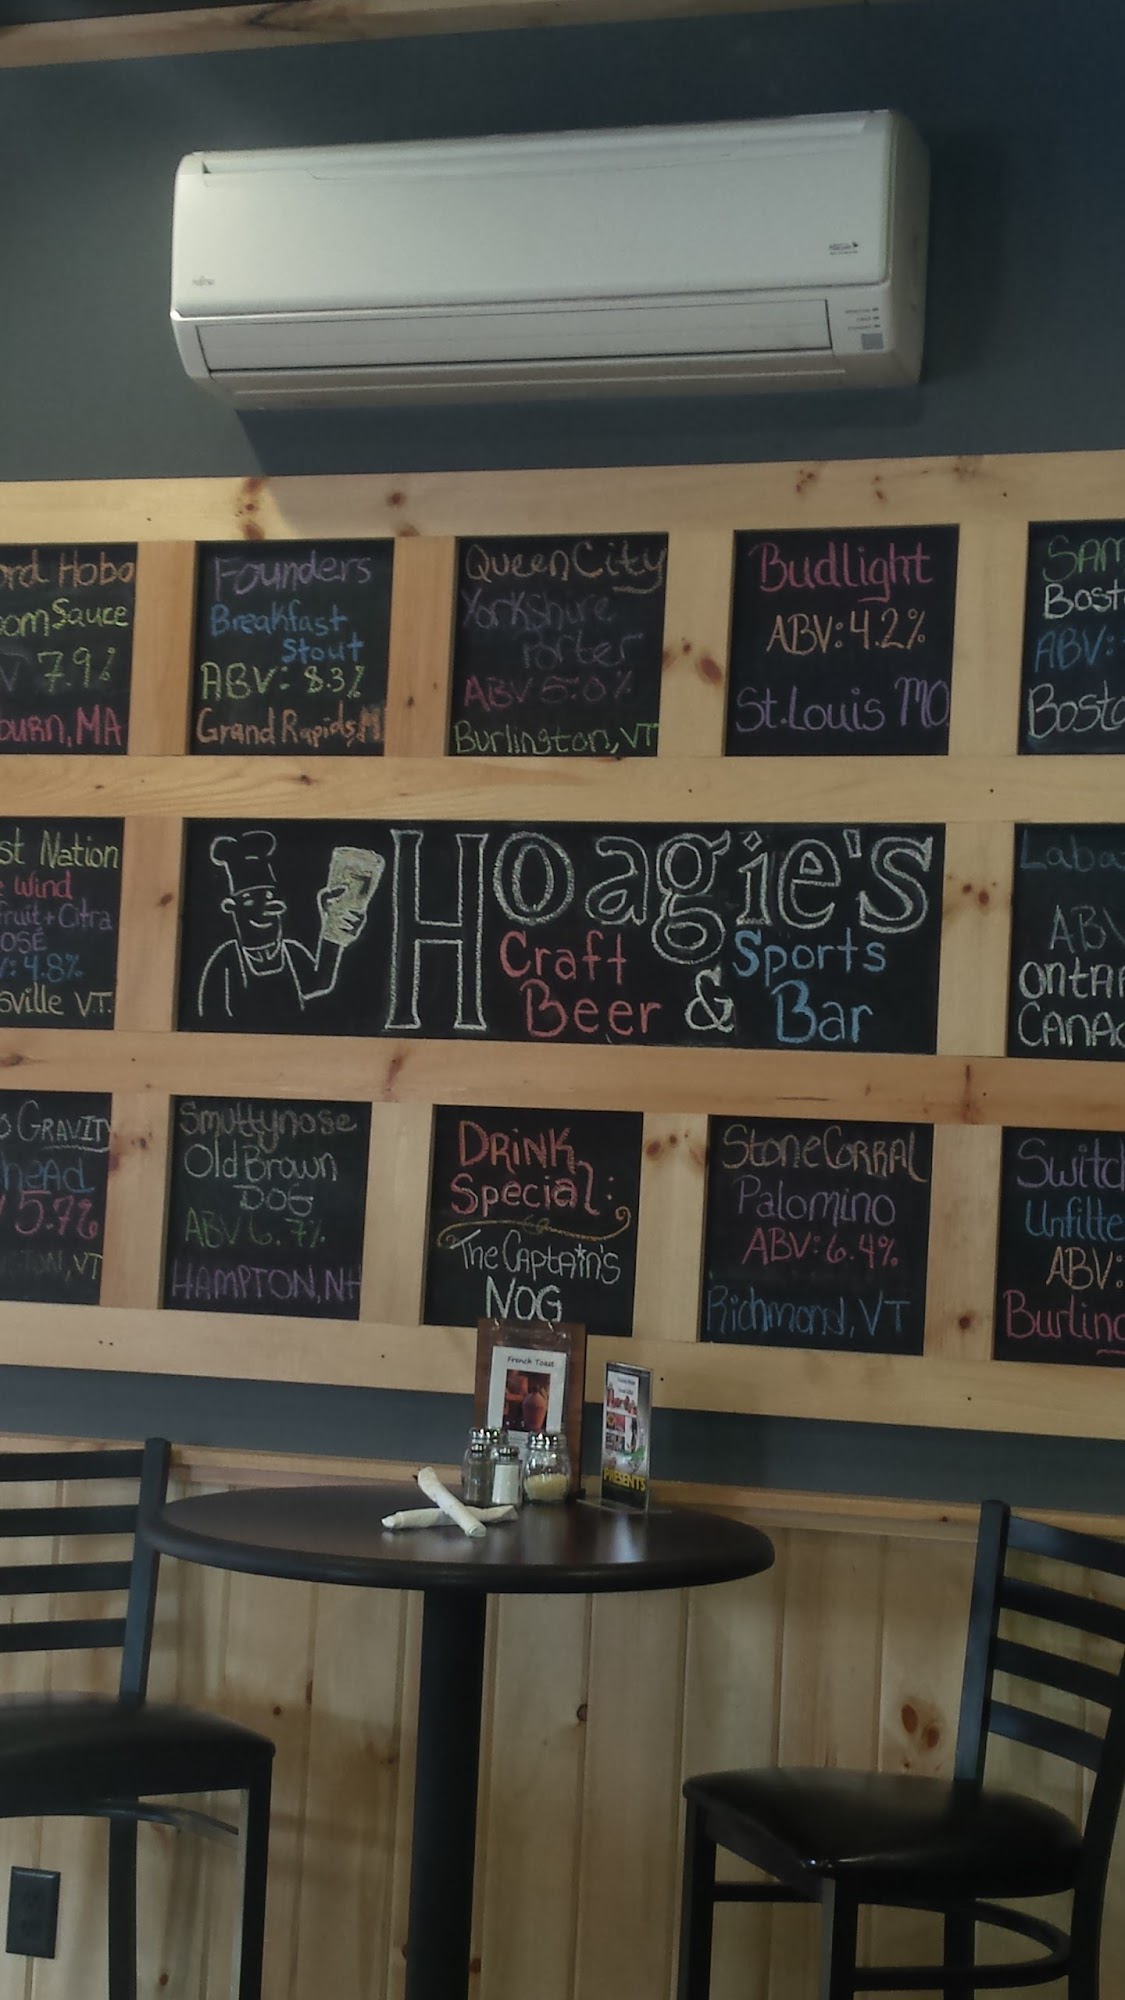 FUJITSU
ord Hobo
oom Sauce
7.9%
burn, MA
Founders
Breakfast
Stout
ABV: 8.3%
Grand Rapids, M
Queen City
Yorkshire
Porter
ABV 5.0%
Burlington, VT
Budlight
ABV: 4.2%
St. Louis MO
SAM
Bost
ABV:
Bosto
st Nation
e Wind
fruit + Citra
OSÉ
V: 4.8%
sville VT.
Hoagie's
Craft
Beer & Sports
Bar
Laba
ABV
ONTAR
CANAD
O GRAVITY
head
5.7%
TON, VT
Smuttynose
Old Brown
DOG
ABV 6.7%
HAMPTON, NH
DRINK
Special:
The Captain's
NOG
Stone CORRAL
Palomino
ABV: 6.4%
Richmond, VT
Switch
Unfilte
ABV:
Burling
French Toast
PRESENTS